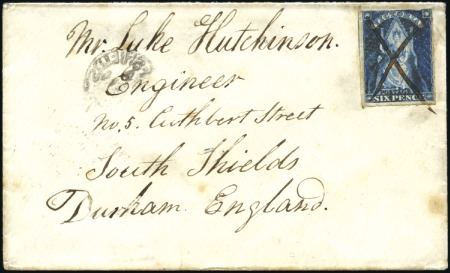 VICTORIA
SIX PENCE
Mr. Luke Hutchinson.
Engineer
No. 5. Cuthbert Street
South Shields
Durham England.